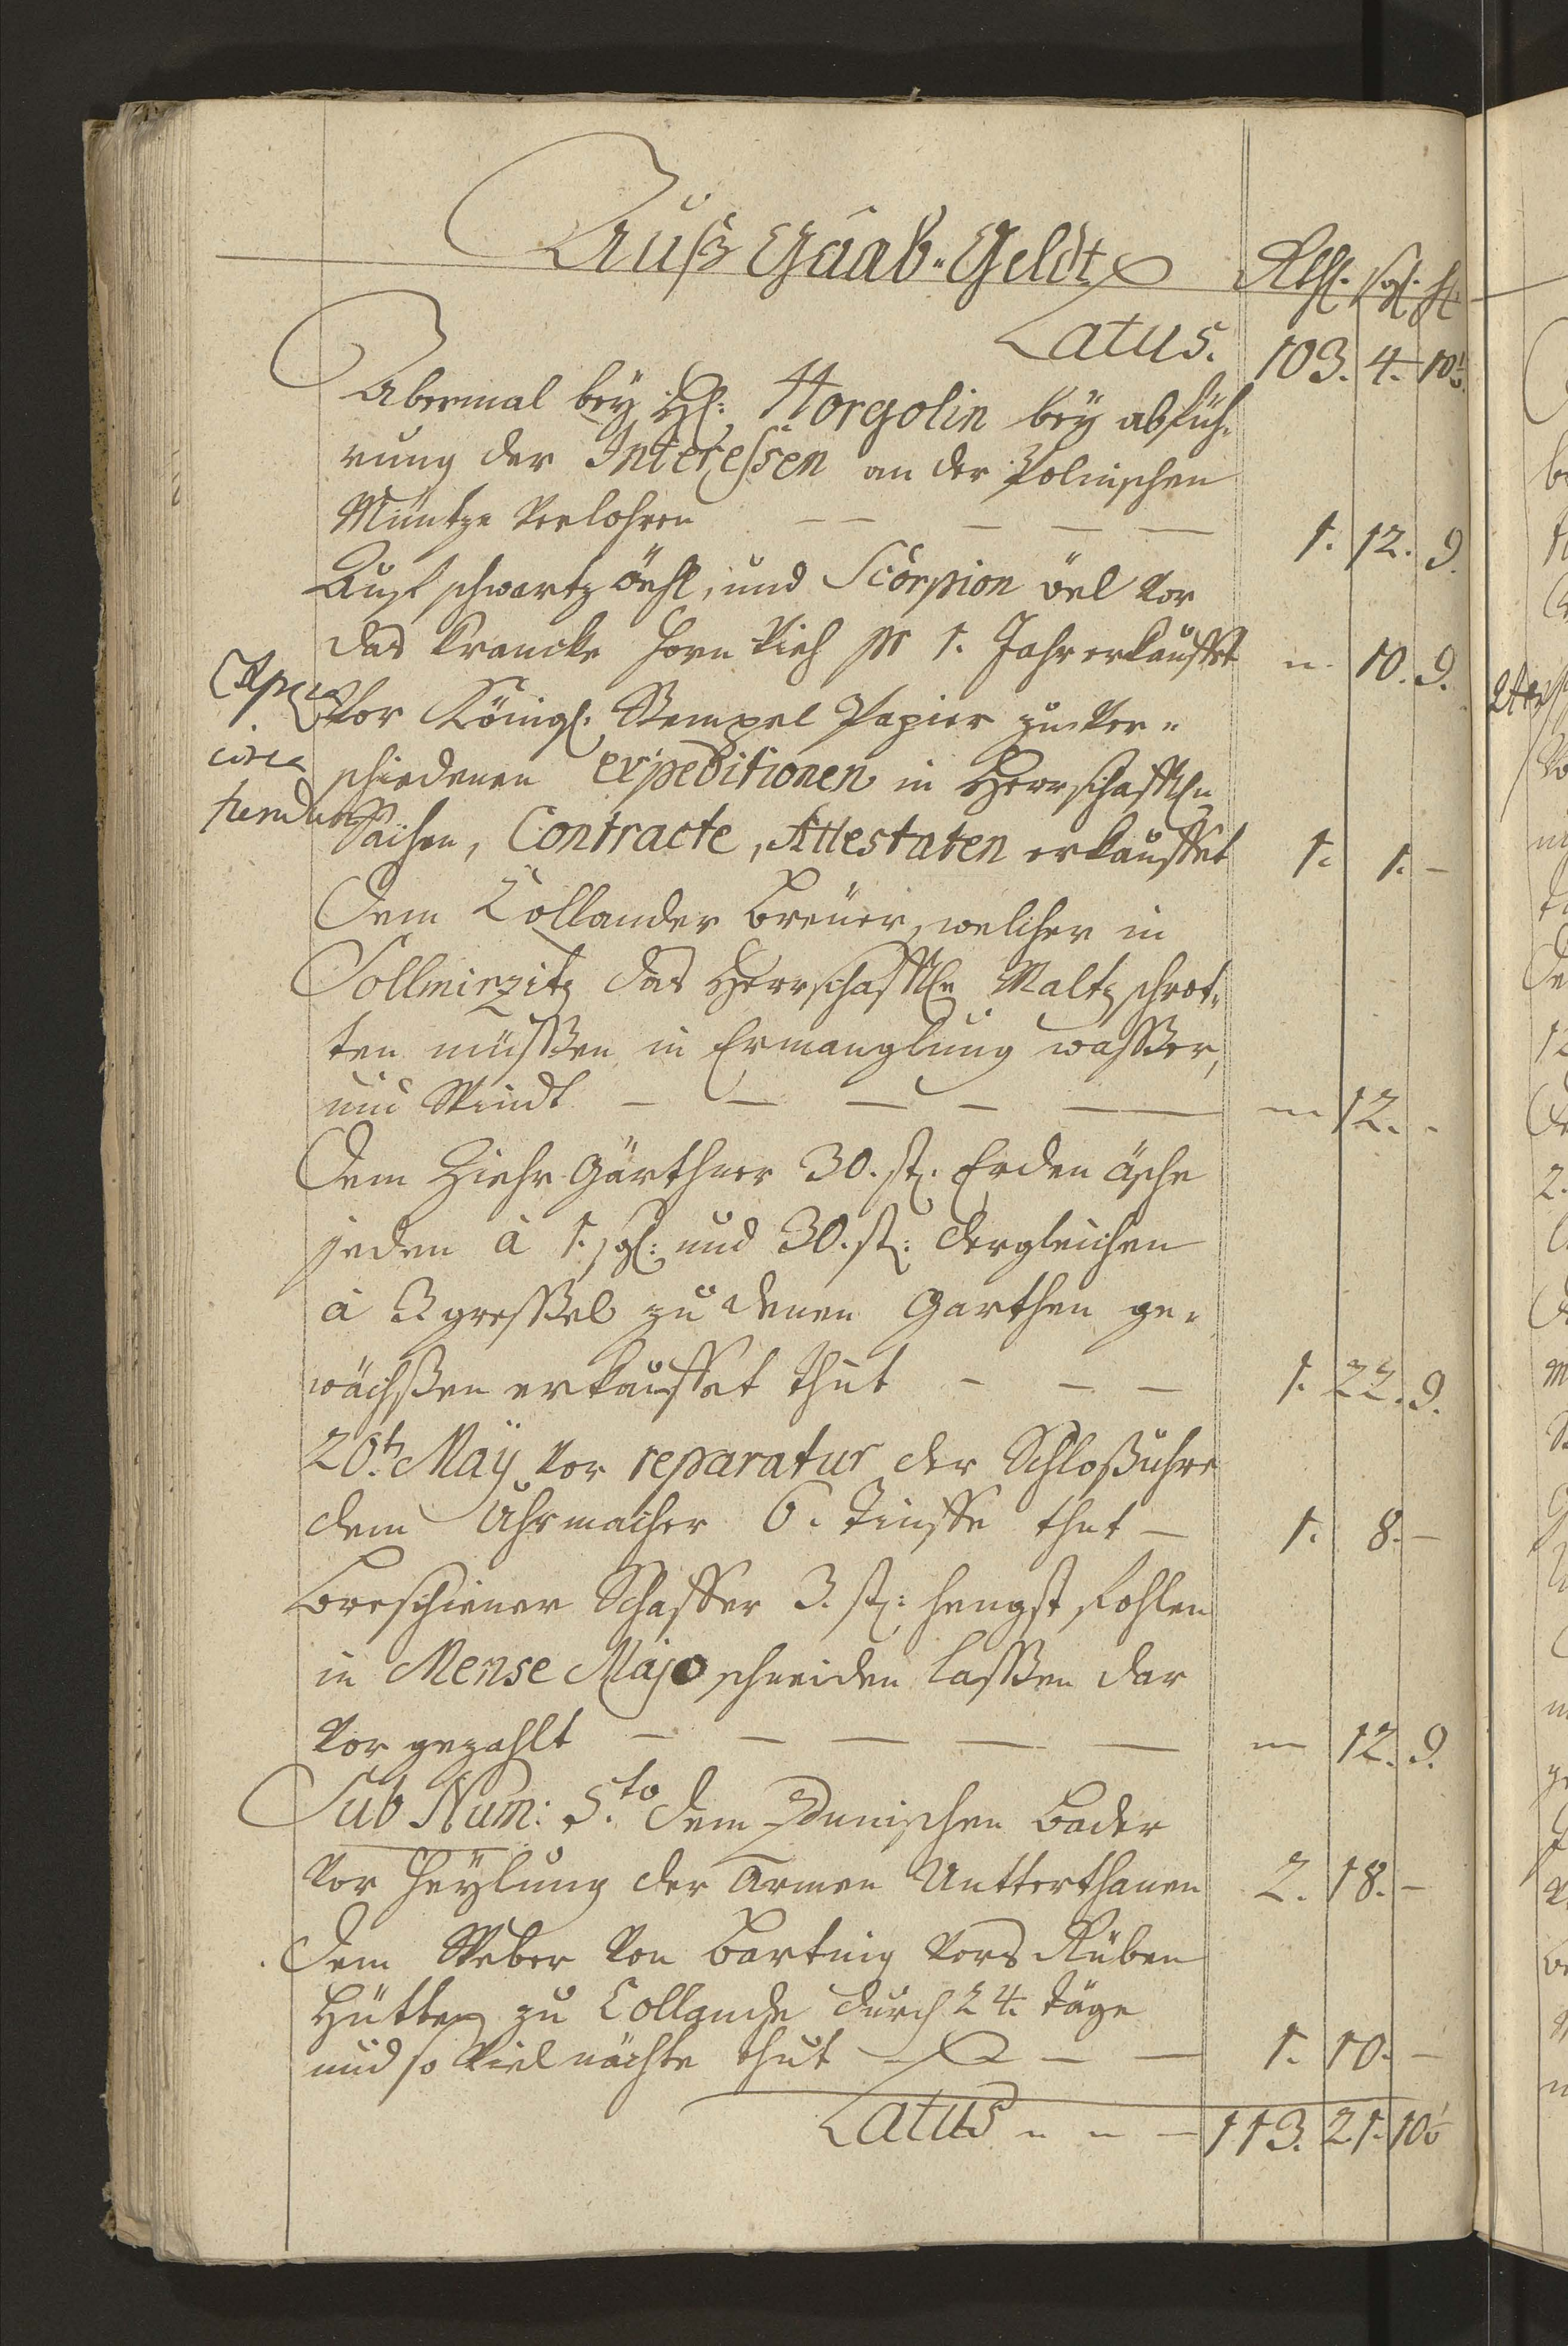 Auß Gaab-Geldt Rthl. sgl. hl.
Latus. 103. 4. 10½
Abermal beÿ H: Horgolin beÿ abfüh-
rung der Interessen an der Polnischen
Müntze verlohren — — — — — 1. 12. 9.
Auf schwartz öehl, und Scorpion öel vor
das krancke horn Vieh pr 1. Jahr erkauffet " 10. 9.
Vor Königl: Stempel Papier zu ver-
circa schiedenen expeditionen in Herrschafftln
Sachen, Contracte, Attestaten erkauffet 1. 1. –
Dem Collander Breuer, welcher in
Sollmirzitz das Herrschafftln Maltz schrot-
ten müssen in Ermanglung wasser,
und Windt — — — — — " 12. -
Dem Ziehr Gärthner 30. st: Erden äsche
jeden à 1. sgl: und 30. st: dergleichen
à 3 gressel zu denen Garthen ge-
wächßen erkauffet thut - - — 1. 22. 9.
20t: Maÿ vor reparatur der Schloßuhre
dem Uhrmacher 6. Tinffe thut — 1. 8. –
Breschiener Schaffer 3. st: hengst fohlen
in Mense Majo schneiden lassen dar
vor gezahlt — — — — — " 12. 9.
Sub Num: 5.to dem Zdunischen Bader
vor Heÿlung der armen Untterthanen 2. 18. –
Dem Weber von Bartnig vors Rüben
Hütten zu Collande durch 24. täge
und so viel nächte thut — — — 1. 10. –
Latus " " — 113. 21. 10½